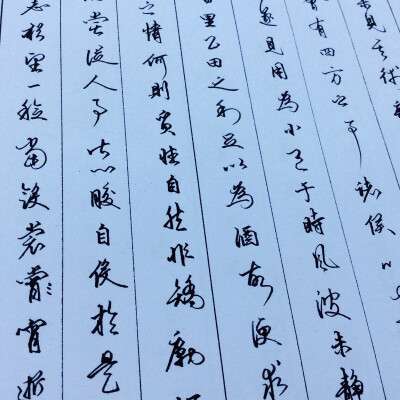 未見其術
有四方之事諸侯以
遂見用為小邑于時風波未靜
里公田之利足以為酒故便求
之情何則質性自然非矯勵
嘗從人事皆口腹自役於是
猶望一稔當斂裳宵逝